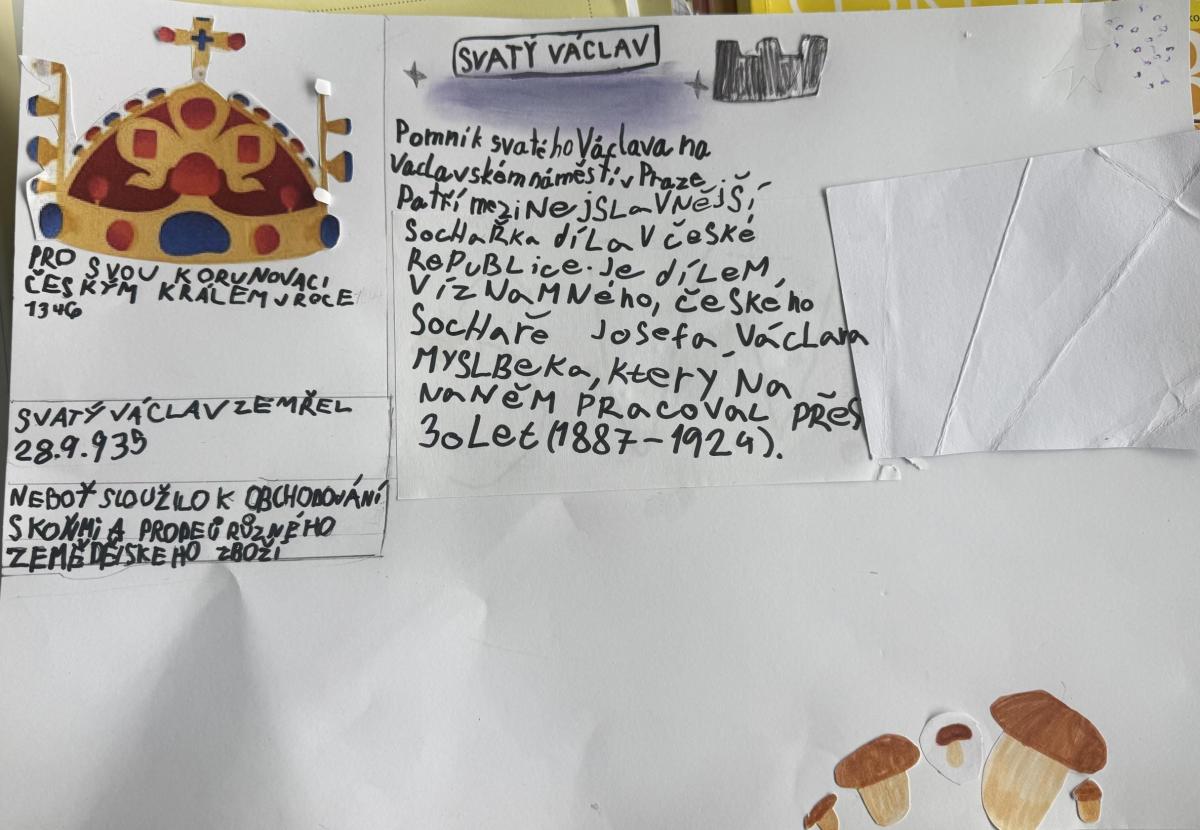 SVATÝ VÁCLAV
Pomník svatého Václava na
Vaclavském náměstí v Praze
Patří mezi NejSLaVNějŠí
SocHaŘKa díLa V česKé
RePUBLice. Je díLeM
VízNaMNého, českého
SocHaře Josefa VácLava
MYSLBeKa, KterÝ Na
NaNěM PRacoVaL PŘes
30 Let (1887-1924).
PRO SVOU KORUNOVACI
ČESKÝM KRÁLEM V ROCE
1346
SVATÝ VÁCLAV ZEMŘEL
28.9.935
NEBOŤ SLOUŽILO K OBCHODOVÁNÍ
S KOŇMI A PRODEJ RŮZNÉHO
ZEMĚDĚLSKEHO ZBOŽÍ